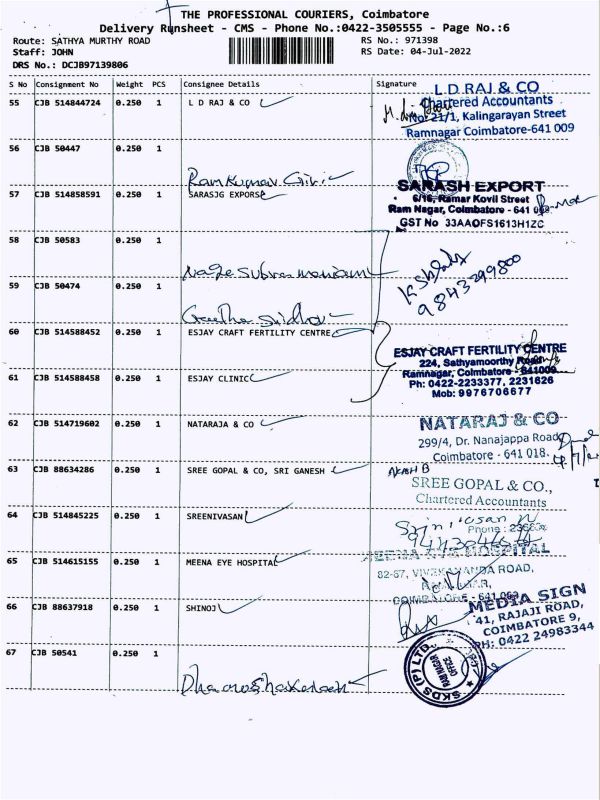 THE PROFESSIONAL COURIERS, Coimbatore
Delivery Runsheet - CMS - Phone No.:0422-3505555 - Page No.:6
Route: SATHYA MURTHY ROAD
RS No.: 971398
Staff: JOHN
RS Date: 04-Jul-2022
DRS No.: DCJB97139806
S No Consignment No Weight PCS Consignee Details Signature
55 CJB 514844724 0.250 1 L D RAJ & CO
L D RAJ & CO
Chartered Accountants
No. 21/1, Kalingarayan Street
Ramnagar Coimbatore-641 009
56 CJB 50447 0.250 1
Ramkumar Giri
57 CJB 514858591 0.250 1 SARASJG EXPORSE
SARASH EXPORT
6/16, Ramar Kovil Street
Ram Nagar, Coimbatore - 641 009.
GST No 33AAOFS1613H1ZC
58 CJB 50583 0.250 1
Nage Subramaniam
59 CJB 50474 0.250 1
Geetha Sridhar
9843299800
60 CJB 514588452 0.250 1 ESJAY CRAFT FERTILITY CENTRE
ESJAY CRAFT FERTILITY CENTRE
224, Sathyamoorthy Road
Ramnagar, Coimbatore - 641009
Ph: 0422-2233377, 2231626
Mob: 9976706677
61 CJB 514588458 0.250 1 ESJAY CLINIC
62 CJB 514719602 0.250 1 NATARAJA & CO
NATARAJ & CO
299/4, Dr. Nanajappa Road,
Coimbatore - 641 018.
63 CJB 88634286 0.250 1 SREE GOPAL & CO, SRI GANESH
SREE GOPAL & CO.,
Chartered Accountants
64 CJB 514845225 0.250 1 SREENIVASAN
Srinivasan N
Phone :
65 CJB 514615155 0.250 1 MEENA EYE HOSPITAL
MEENA EYE HOSPITAL
82-87, VIVEKANANDA ROAD,
COIMBATORE - 641 009
66 CJB 88637918 0.250 1 SHINOJ
MEDIA SIGN
41, RAJAJI ROAD,
COIMBATORE 9,
PH: 0422 24983344
67 CJB 50541 0.250 1
SKDS (P) LTD.
RAM NAGAR
OFFICE